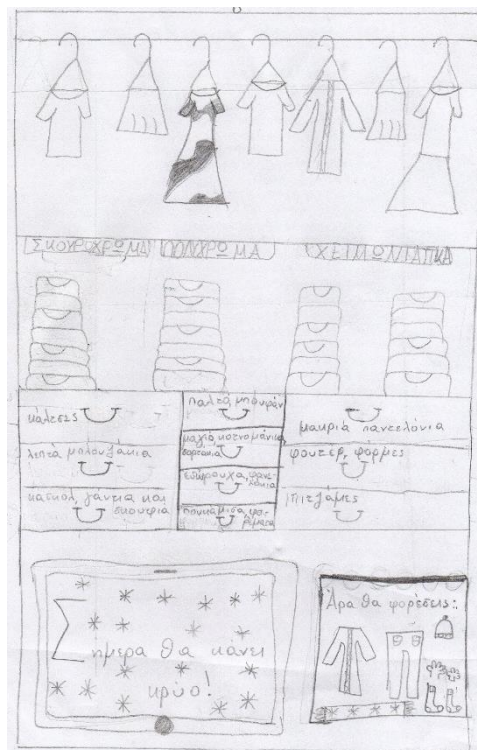 ΣΚΟΥΡΟΧΡΩΜΑ
ΧΕΙΜΩΝΙΑΤΙΚΑ
κάλτσες
λεπτά μπλουζάκια
κασκόλ, γάντια και
σκουφιά
παλτά, μπουφάν
μαγιό, κοντομάνικα,
σορτσάκια
εσώρουχα, φανε
λάκια
πουκάμισα, φο
ρέματα
μακριά παντελόνια
φούτερ, φόρμες
πιτζάμες
Σημερα θα κάνει
κρύο!
Άρα θα φορέσεις: